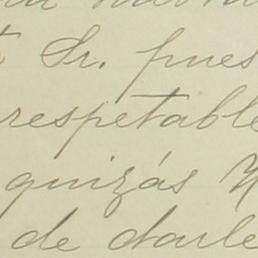 Sr. pues
respetable
quizás
de darle